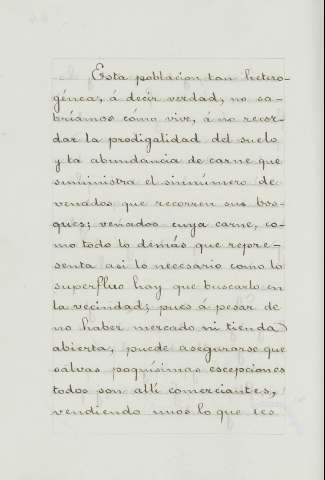 Esta poblacion tan hetero-
génea, á decir verdad, no sa-
bríamos cómo vive, á no recor-
dar la prodigalidad del suelo
y la abundancia de carne que
suministra el sinnúmero de
venados que recorren sus bos-
ques; venados cuya carne, co-
mo todo lo demás que repre-
senta asi lo necesario como lo
superfluo hay que buscarlo en
la vecindad; pues á pesar de
no haber mercado ni tienda
abierta, puede asegurarse que
salvas poquísimas escepciones
todos son allí comerciantes,
vendiendo unos lo que les